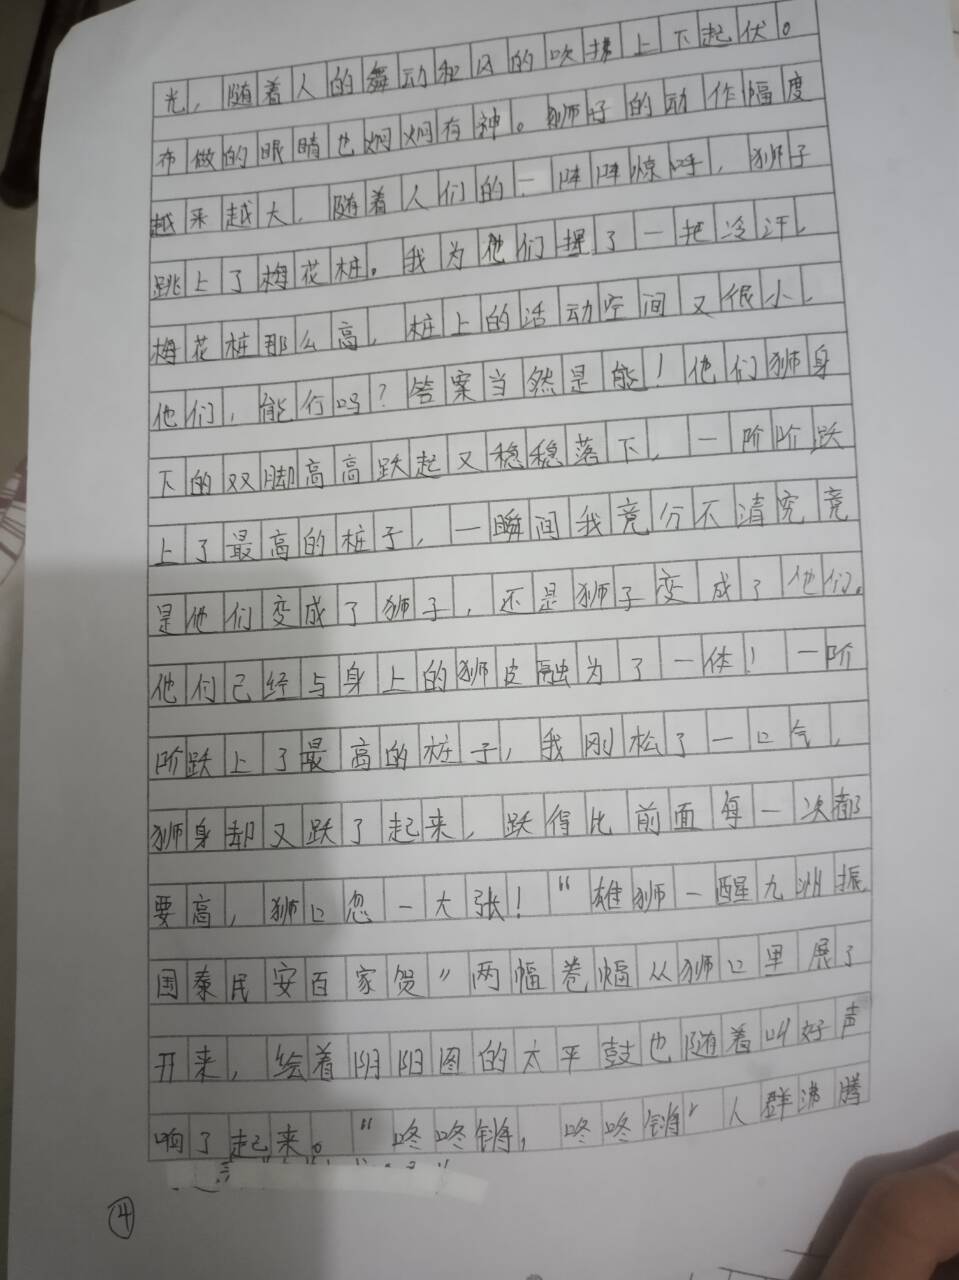 光，随着人的舞动和风的吹拂上下起伏。
布做的眼睛也炯炯有神。狮子的动作幅度
越来越大，随着人们的一阵阵惊呼，狮子
跳上了梅花桩。我为他们握了一把冷汗，
梅花桩那么高，桩上的活动空间又很小，
他们，能行吗？答案当然是能！他们狮身
下的双脚高高跃起又稳稳落下，一阶阶跃
上了最高的桩子，一瞬间我竟分不清究竟
是他们变成了狮子，还是狮子变成了他们。
他们己经与身上的狮皮融为了一体！一阶
阶跃上了最高的桩子，我刚松了一口气，
狮身却又跃了起来，跃得比前面每一次都
要高，狮口忽一大张！“雄狮一醒九洲振
国泰民安百家贺”两幅卷幅从狮口里展了
开来，绘着阴阳图的太平鼓也随着叫好声
响了起来。“咚咚锵，咚咚锵”人群沸腾
④